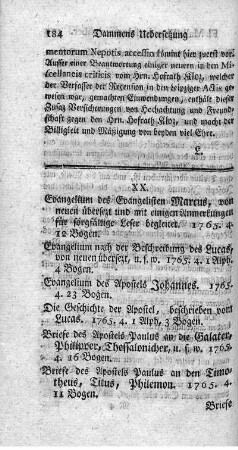 184 Dammens Uebersetzung
mentorum Nepotis accessio kömmt hier zuerst vor.
Ausser einer Beantwortung einiger neuern in den Mi-
scellaneis criticis vom Hrn. Hofrath Kloz, welcher
der Verfasser der Recension in den leipziger Actis gewe-
sen war, gemachten Einwendungen, enthält dieser
Zusaz Versicherungen von Hochachtung und Freund-
schaft gegen den Hrn. Hofrath Kloz, und macht der
Billigkeit und Mäßigung von beyden viel Ehre.
XX.
Evangelium des Evangelisten Marcus, von
neuen übersezt und mit einigen Anmerkungen
für sorgfältige Leser begleitet. 1765. 4.
12 Bogen.
Evangelium nach der Beschreibung des Lucas,
von neuen übersezt, u. s. w. 1765. 4. 1 Alph.
4 Bogen.
Evangelium des Apostels Johannes. 1765.
4. 23 Bogen.
Die Geschichte der Apostel, beschrieben vom
Lucas. 1765. 4. 1 Alph. 3 Bogen.
Briefe des Apostels Paulus an die Galater,
Philipper, Thessalonicher, u. s. w. 1765.
4. 16 Bogen.
Briefe des Apostels Paulus an den Timo-
theus, Titus, Philemon. 1765. 4.
11 Bogen.
Briefe